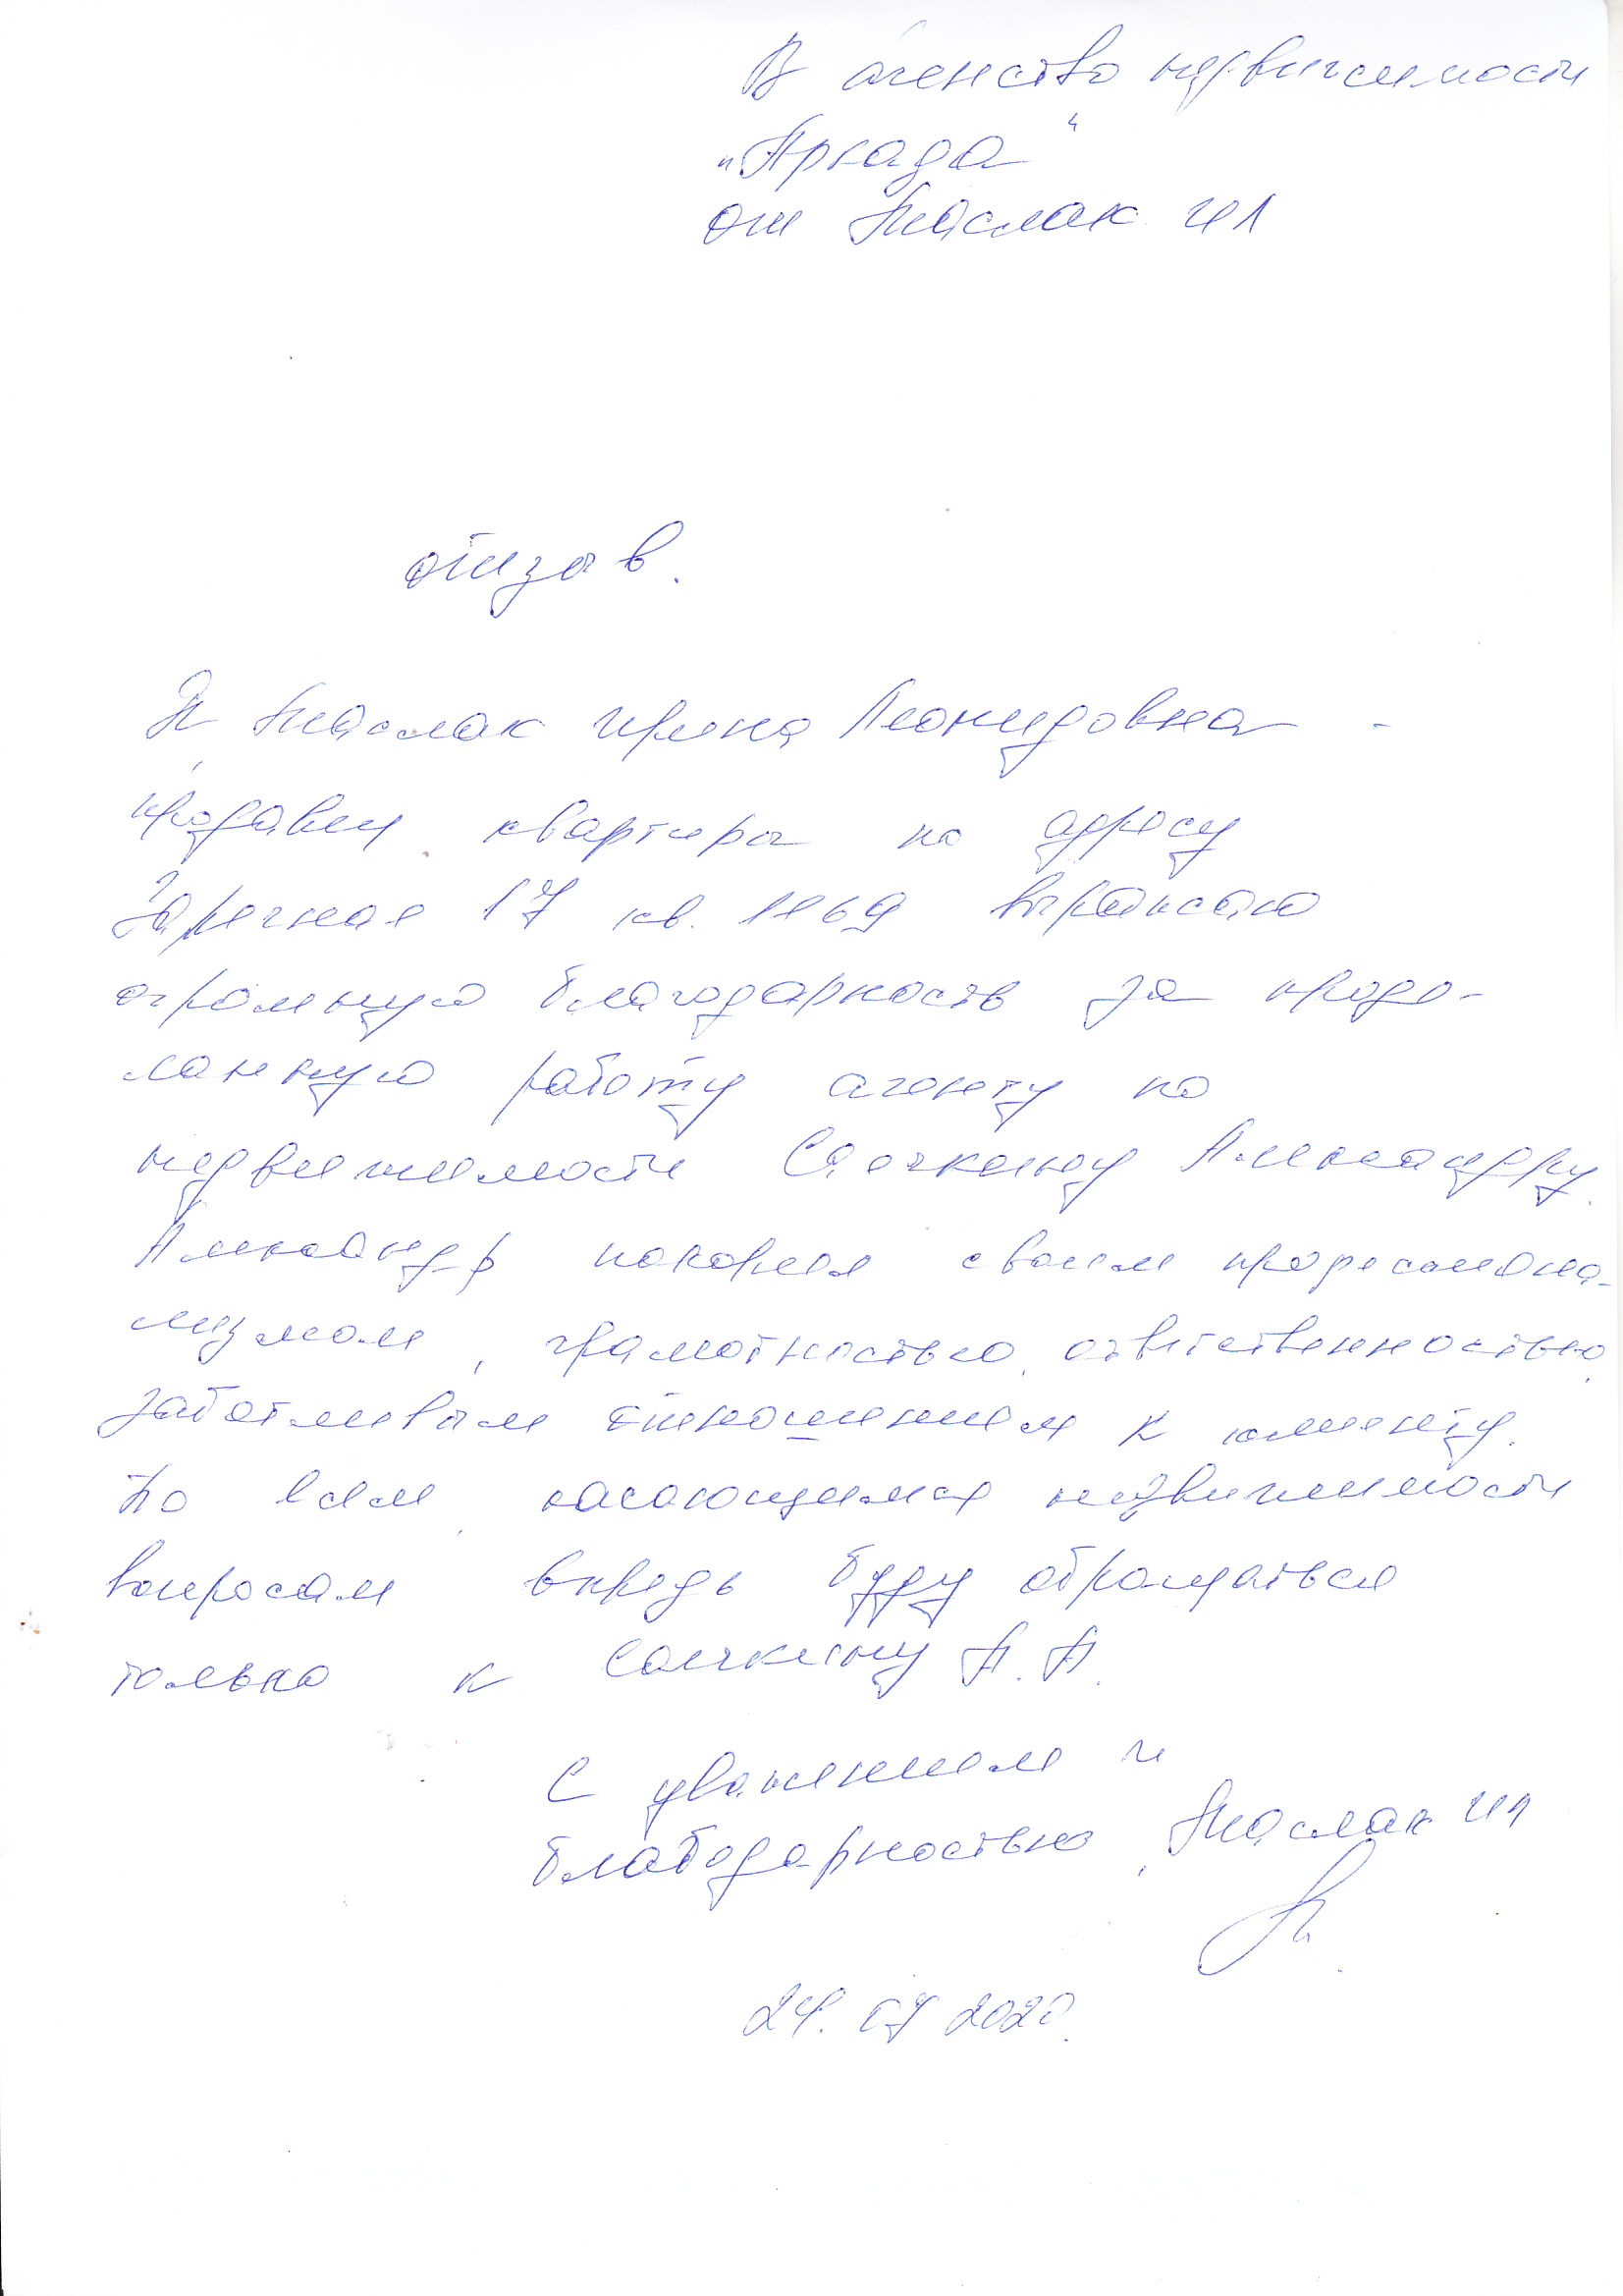 В агенство недвижимости
"Аркада"
от Пислак ИЛ
отзыв.
Я Пислак Ирина Леонидовна -
продавец квартиры по адресу
Заречная 17 кв. выражаю
огромную благодарность за проде-
ланную работу агенту по
недвижимости Саечкину Александру.
Александр покорил своим професиона-
лизмом, грамотностью, ответственностью,
заботливым отношением к клиенту.
По всем касающимся недвижимости
вопросам впредь буду обращаться
только к Саечкину А.А.
С уважением и
благодарностью, Пислак ИЛ
24.07 2020.